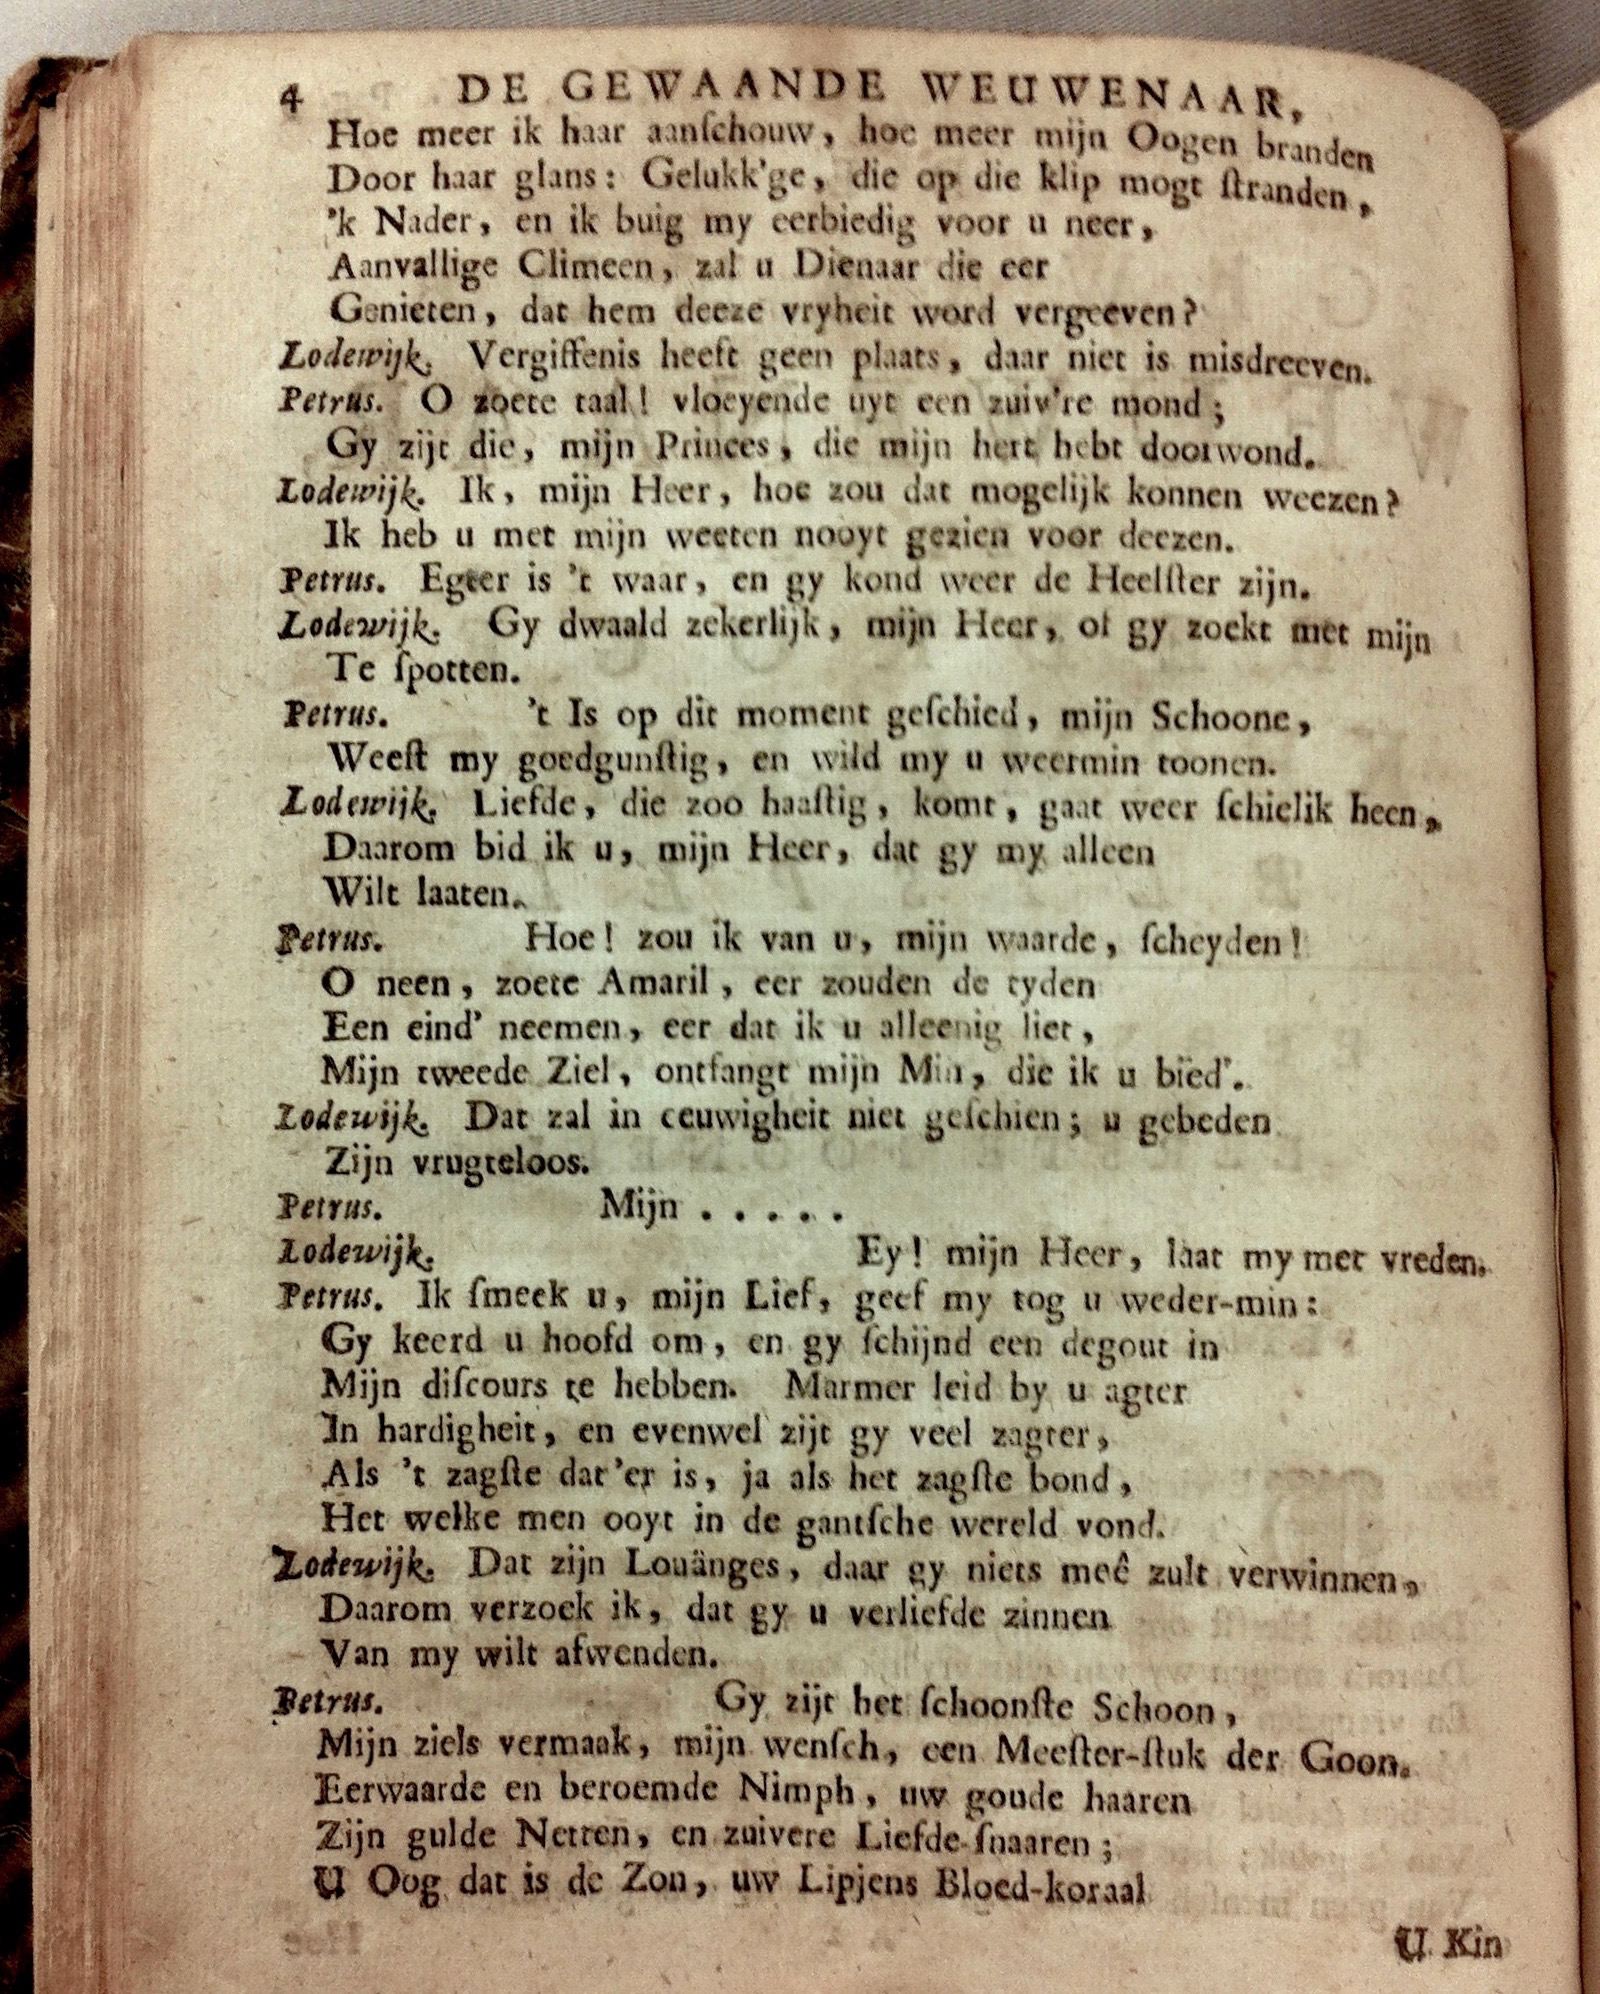 4 DE GEWAANDE WEUWENAAR,
Hoe meer ik haar aanſchouw, hoe meer mijn Oogen branden
Door haar glans: Gelukk'ge, die op die klip mogt ſtranden,
'k Nader, en ik buig my eerbiedig voor u neer,
Aanvallige Climeen, zal u Dienaar die eer
Genieten, dat hem deeze vryheit word vergeeven?
Lodewijk. Vergiffenis heeft geen plaats, daar niet is misdreeven.
Petrus. O zoete taal! vloeyende uyt een zuiv're mond;
Gy zijt die, mijn Princes, die mijn hert hebt doorwond.
Lodewijk. Ik, mijn Heer, hoe zou dat mogelijk konnen weezen?
Ik heb u met mijn weeten nooyt gezien voor deezen.
Petrus. Egter is 't waar, en gy kond weer de Heelſter zijn.
Lodewijk. Gy dwaald zekerlijk, mijn Heer, of gy zoekt met mijn
Te ſpotten.
Petrus. 't Is op dit moment geſchied, mijn Schoone,
Weeſt my goedgunſtig, en wild my u weermin toonen.
Lodewijk. Liefde, die zoo haaſtig, komt, gaat weer ſchielik heen,
Daarom bid ik u, mijn Heer, dat gy my alleen
Wilt laaten.
Petrus. Hoe! zou ik van u, mijn waarde, ſcheyden!
O neen, zoete Amaril, eer zouden de tyden
Een eind' neemen, eer dat ik u alleenig liet,
Mijn tweede Ziel, ontfangt mijn Min, die ik u bied'.
Lodewijk. Dat zal in eeuwigheit niet geſchien; u gebeden
Zijn vrugteloos.
Petrus. Mijn . . . . .
Lodewijk. Ey! mijn Heer, laat my met vreden.
Petrus. Ik ſmeek u, mijn Lief, geef my tog u weder-min:
Gy keerd u hoofd om, en gy ſchijnd een degout in
Mijn diſcours te hebben. Marmer leid by u agter
In hardigheit, en evenwel zijt gy veel zagter,
Als 't zagſte dat 'er is, ja als het zagſte bond,
Het welke men ooyt in de gantſche wereld vond.
Lodewijk. Dat zijn Louänges, daar gy niets meê zult verwinnen,
Daarom verzoek ik, dat gy u verliefde zinnen
Van my wilt afwenden.
Petrus. Gy zijt het ſchoonſte Schoon,
Mijn ziels vermaak, mijn wenſch, een Meeſter-ſtuk der Goon.
Eerwaarde en beroemde Nimph, uw goude haaren
Zijn gulde Netten, en zuivere Liefde-ſnaaren;
U Oog dat is de Zon, uw Lipjens Bloed-koraal
U Kin